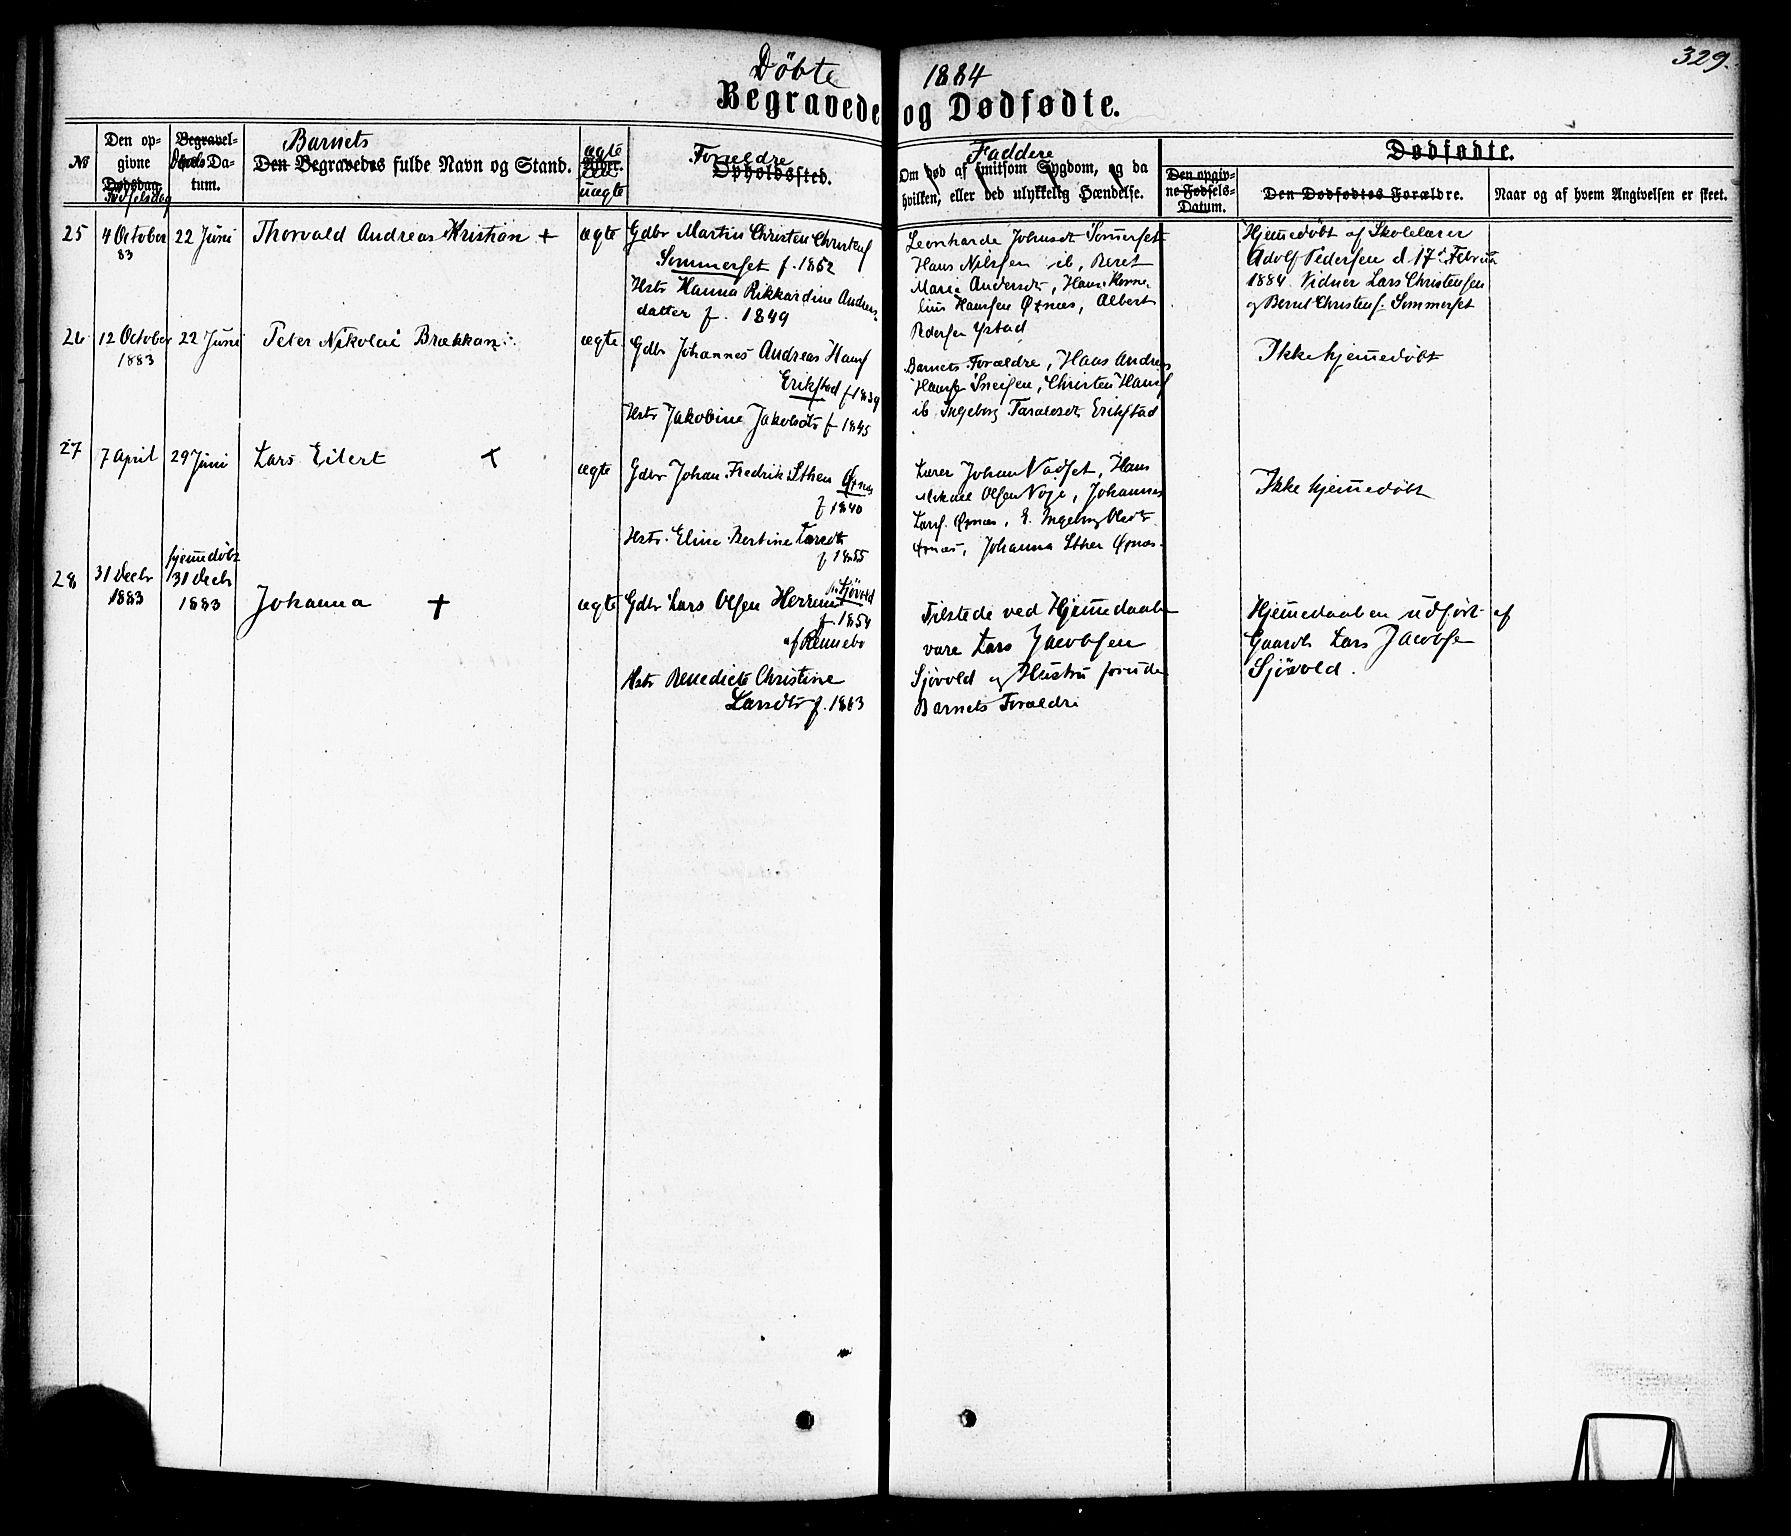 329.
Døbte 1884
Begravede og Dødfødte.
Barnets
ægte
Forældre
Faddere
Dødfødte.
№
Den opgivne Dødsdag.
Fødselsdag
Begravelses-Datum.
Daabs
Den Begravedes fulde Navn og Stand.
uægte
Opholdssted.
Om død af smitsom Sygdom, og da
hvilken, eller ved ulykkelig Hændelse.
Den opgivne Fødsels-Datum.
Den Dødfødtes Forældre.
Naar og af hvem Angivelsen er skeet.
25 4 October 83 22 Juni Thorvald Andreas Kristian + ægte
Gdbr Martin Christen Christens
Sommerset f. 1852
Hstr Hanna Rikkardine Anders-
datter f. 1849
Leonharde Johnsdt Sommerset
Hans Nilssen ib, Beret
Maria Andersdt, Hans Korne-
lius Hanssen Ørnes, Albert
Pedersen Ystad
Hjemmedøbt af Skolelærer
Adolf Pedersen d. 17de Februar
1884. Vidner Lars Christensen
og Bernt Christens. Sommerset
26 12 October 1883 22 Juni Peter Nikolai Brækkan ægte
Gdbr Johannes Andreas Hans
Erikstad f 1839
Hstr Jakobine Jakobsdtr f 1845
Barnets Forældre, Hans Andreas
Hans Sneisen, Christen Hans
ib. Ingeborg Taraldsdt Erikstad
Ikke hjemmedøbt
27 7 April 29 Juni Lars Eilert + ægte
Gdbr Johan Fredrik Sthen Ørnes
f 1840
Hstr. Eline Bertine Larsdtr
f 1855
Lærer Johan Vadset, Hans
Mikael Olsen Voje, Johannes
Lars. Ørnæs, E. Ingeborg Olsdtr
Ørnæs, Johanna Sthen Ørnæs.
Ikke hjemmedøbt
28 31 Decbr 1883 hjemmedøbt 31 Decbr 1883 Johanna + ægte
Gdbr Lars Olsen Sjøvold
f. 1854
af Rennebo
Hstr Benedicte Christine
Larsdtr f. 1863
Tilstede ved Hjemmedaaben
vare Lars Jacobsen
Sjøvold og Hustru foruden
Barnets Forældre
Hjemmedaaben udført af
Gaardb. Lars Jacobsen
Sjøvold.